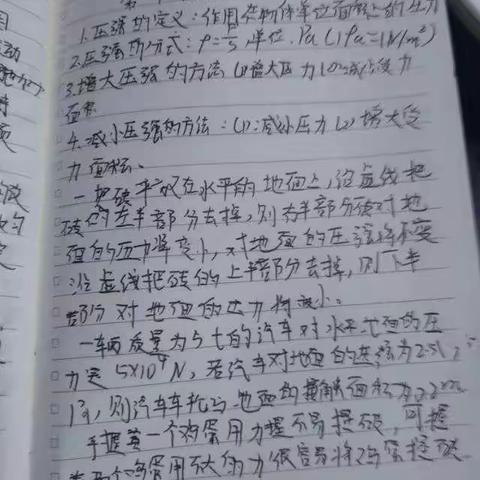 1.压强的定义:作用在物体单位面积上的压力
2.压强的公式:P=F/S 单位.Pa (1Pa=1N/m²)
3.增大压强的方法 (1)增大压力 (2)减小受力
面积
4.减小压强的方法:(1)减小压力 (2)增大受
力面积、
一把砖平放在水平的地面上,沿虚线把
砖的左半部分去掉,则右半部分砖对地
面的压力将变小,对地面的压强将不变
沿虚线把砖的上半部分去掉,则下半
部分对地面的压力将减小。
一辆质量为5t的汽车对水平地面的压
力是5×10⁴N,若汽车对地面的压强为2.5×
则汽车车轮与地面的接触面积为0.2m
手握着一个鸡蛋用力握不易握破,可握
着两个鸡蛋用不大的力很容易将鸡蛋握破